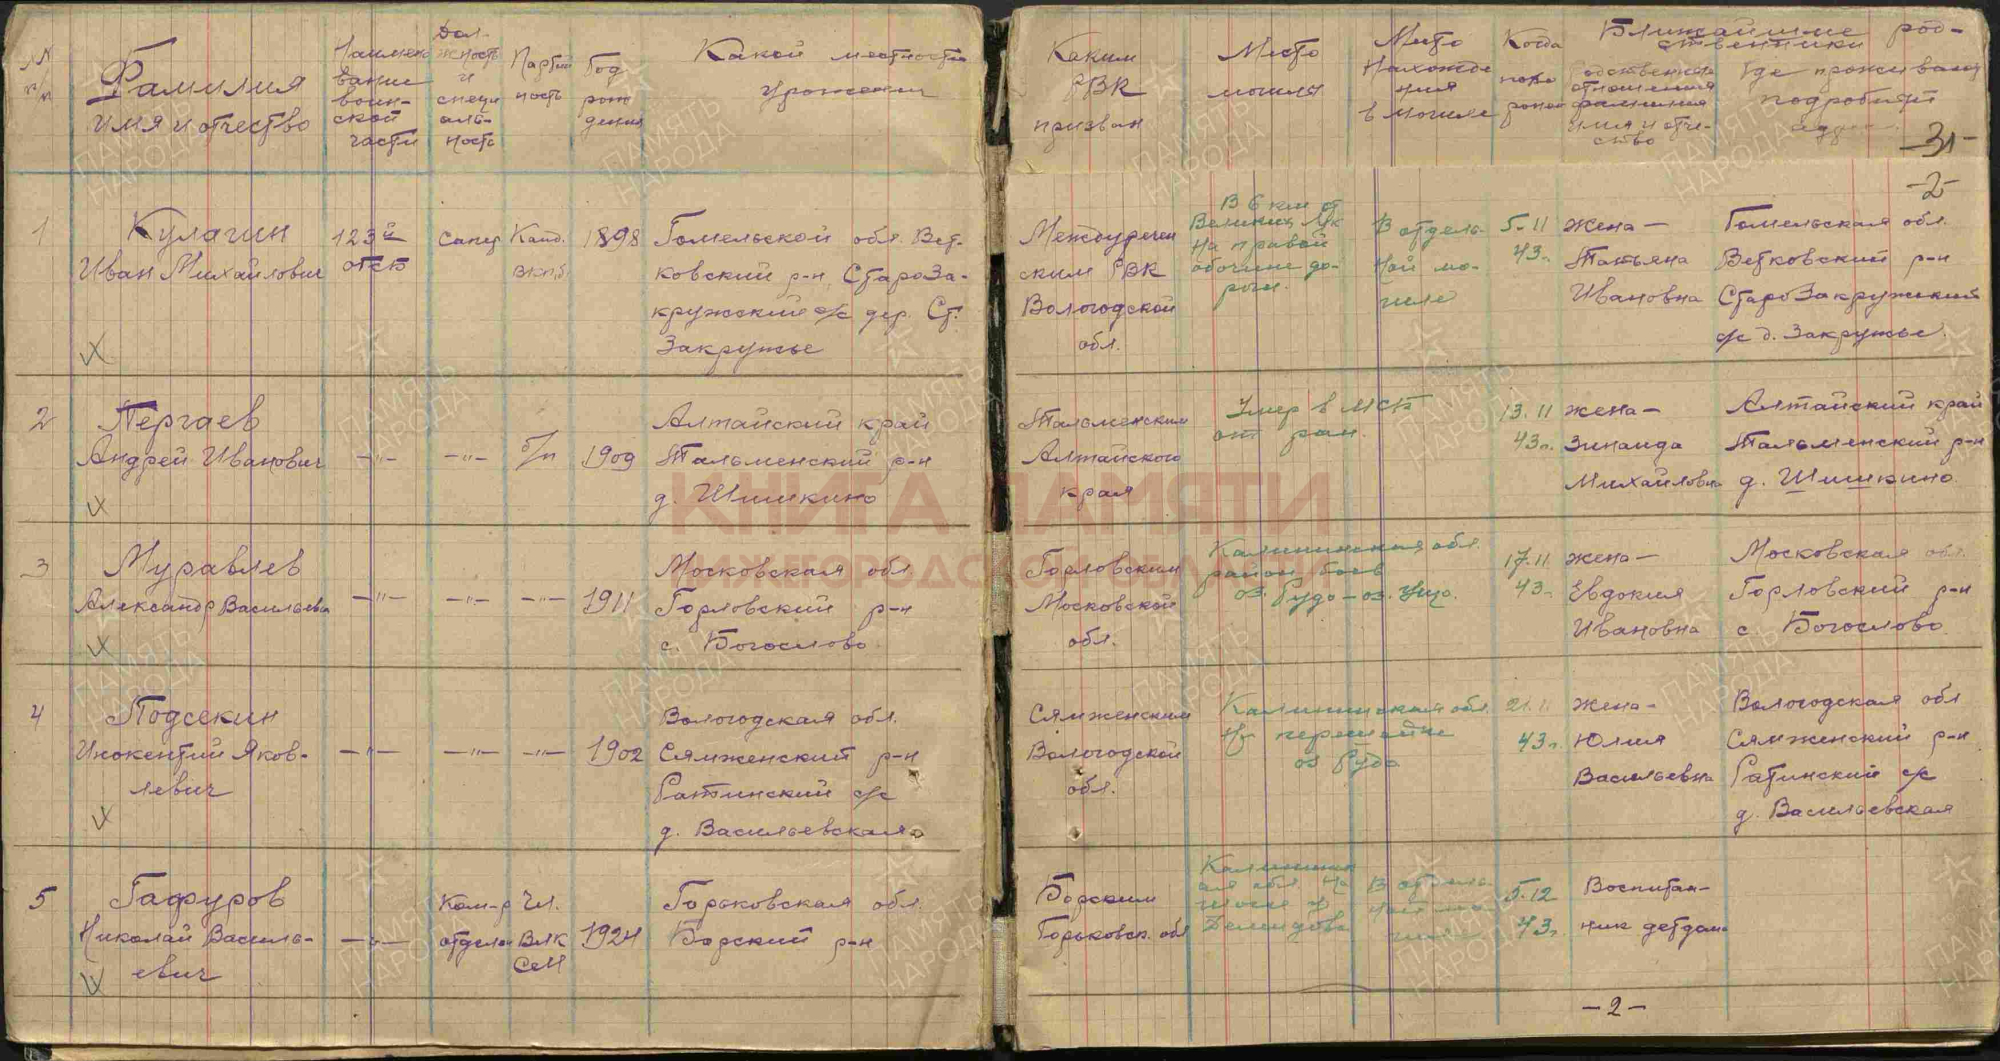 №№ п/п
Фамилия
имя и отчество
Наимено
вание
воин-
ской
части
Дол-
жность
и
специ
аль-
ность
Партий
ность
Год
рож
дения
Какой местности
уроженец
Каким
РВК
призван
Место
могилы
Место
Нахожде
ния
в могиле
Когда
похо
ронен
Ближайшие род-
ственники
Родственные
отношения
фамилия
имя и отче-
ство
Где проживают
подробный
-31-
-2-
1
Кулагин
Иван Михайлович
123й
отсб
сапер
Канд.
ВКП.б
1898
Гомельской обл. Вет-
ковский р-н, СтароЗа-
кружский с/с дер. Ст.
Закружье
Междуречен
ским РВК
Вологодской
обл.
В 6 км от
Великих Лук
На правой
обочине до-
роги.
В отдель-
ной мо-
гиле
5.11
43г.
Жена-
Татьяна
Ивановна
Гомельская обл.
Ветковский р-н
СтароЗакружский
с/с д. Закружье.
2
Пергаев
Андрей Иванович
-"-
-"-
б/п
1909
Алтайский край
Тальменский р-н
д. Шишкино
Тальменским
Алтайского
края
Умер в МСБ
от ран.
13.11
43г.
Жена-
Зинаида
Михайловна
Алтайский край
Тальменский р-н
д. Шишкино
3
Муравлев
Александр Васильеви
-"-
-"-
-"-
1911
Московская обл
Горловский р-н
с. Богослово
Горловским
Московской
обл.
Калининская обл.
район боев
17.11
43г.
Жена-
Евдокия
Ивановна
Московская обл
Горловский р-н
с Богослово
4
Подсекин
Инокентий Яков-
левич
-"-
-"-
-"-
1902
Вологодская обл.
Сямженский р-н
Ратинский с/с
д. Васильевская
Сямженским
Вологодской
обл.
Калининская обл.
На перешейке
оз Рудо
21.11
43г.
Жена-
Юлия
Васильевна
Вологодская обл
Сямженский р-н
Ратинский с/с
д. Васильевская
5
Гафуров
Николай Василь-
евич
-"-
Ком-р
отделен
Чл.
ВЛК
СМ
1924
Горьковская обл.
Борский р-н
Борским
Горьковск. обл
Калининск
ая обл. На
Демидово
В отдель-
ной мо-
гиле
5.12
43г.
Воспитан-
ник детдома
-2-
КНИГА ПАМЯТИ
НИЖЕГОРОДСКОЙ ОБЛАСТИ
ПАМЯТЬ
НАРОДА